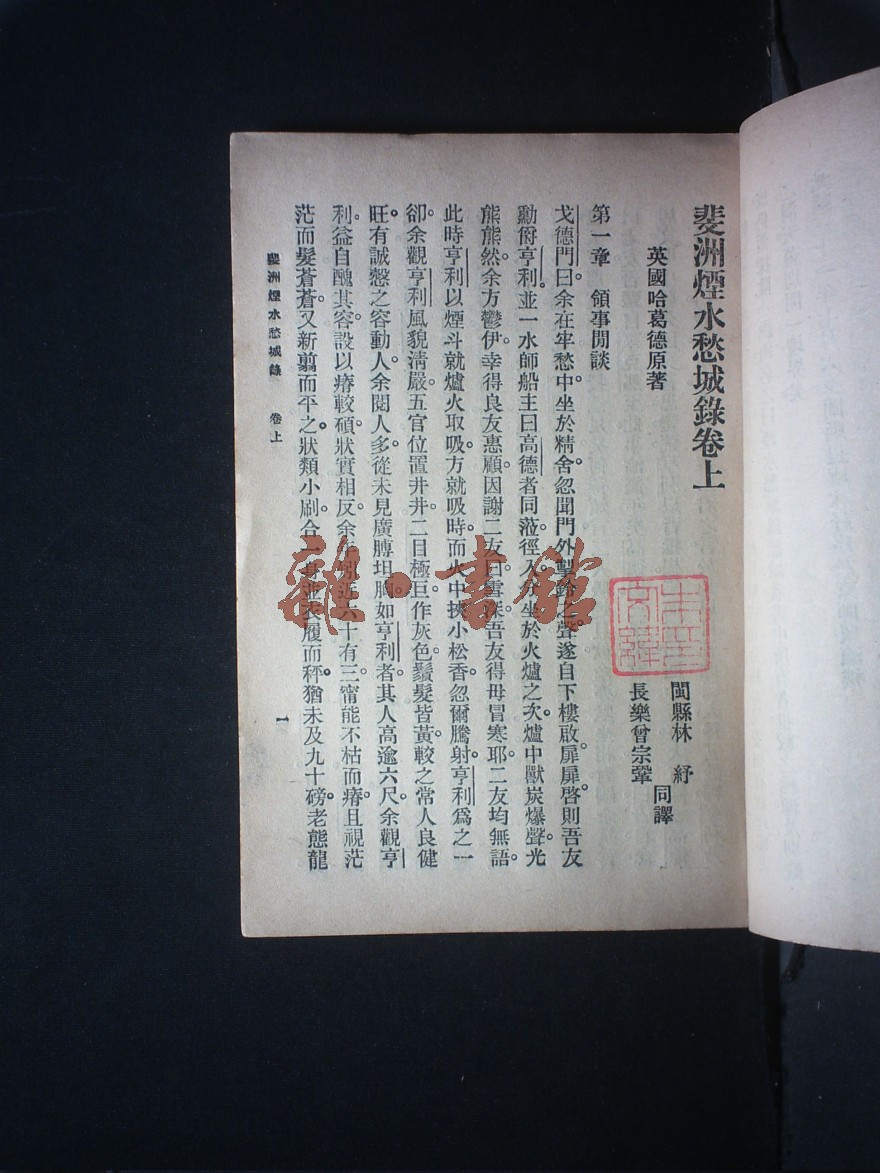 斐洲煙水愁城錄卷上
英國哈葛德原著
閩縣林 紓
長樂曾宗鞏
同譯
第一章 領事閒談
戈德門曰余在牢愁中坐於精舍忽聞門外掣鈴之聲遂自下樓啟扉扉啓則吾友
勳爵亨利並一水師船主曰高德者同蒞徑入分坐於火爐之次爐中獸炭爆聲光
熊熊然余方鬱伊幸得良友惠顧因謝二友曰雪深吾友得毋冒寒耶二友均無語
此時亨利以煙斗就爐火取吸方就吸時而火中挾小松香忽爾騰射亨利爲之一
卻余觀亨利風貌淸嚴五官位置井井二目極巨作灰色鬚髮皆黃較之常人良健
旺有誠慤之容動人余閱人多從未見廣膊坦胸如亨利者其人高逾六尺余觀亨
利益自醜其容設以瘠較碩狀實相反余年近六十有三甯能不枯而瘠且視茫
茫而髮蒼蒼又新翦而平之狀類小刷合一身並衣履而秤猶未及九十磅老態龍
斐洲煙水愁城錄 卷上
一
雜·書館